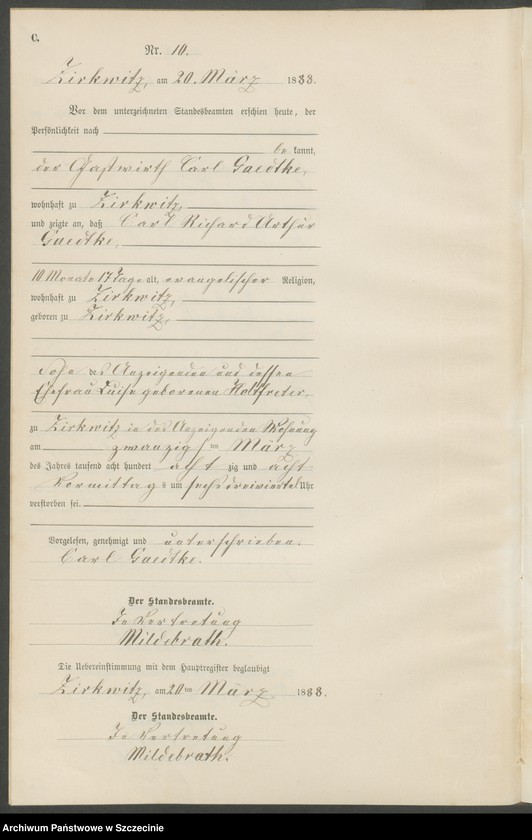 C.
Nr. 10.
Zirkwitz, am 20. März 1888.
Vor dem unterzeichneten Standesbeamten erschien heute, der
Persönlichkeit nach
be kannt,
der Gastwirth Carl Gaedtke,
wohnhaft zu Zirkwitz,
und zeigte an, daß Carl Richard Arthur
Gaedtke,
10 Monate 17 Tage alt, evangelischer Religion,
wohnhaft zu Zirkwitz,
geboren zu Zirkwitz,
Sohn des Anzeigenden und dessen
Ehefrau Luise geborenen Holtfreter,
zu Zirkwitz in des Anzeigenden Wohnung
am zwanzigsten März
des Jahres tausend acht hundert acht zig und acht
Vormittags um sechs dreiviertel Uhr
verstorben sei.
Vorgelesen, genehmigt und unterschrieben.
Carl Gaedtke.
Der Standesbeamte.
In Vertretung
Mildebrath.
Die Uebereinstimmung mit dem Hauptregister beglaubigt
Zirkwitz, am 20ten März 1888.
Der Standesbeamte.
In Vertretung
Mildebrath.
Archiwum Państwowe w Szczecinie